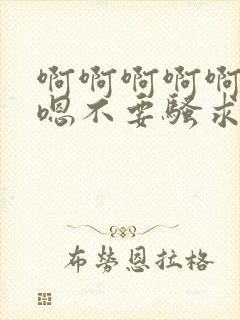 啊啊啊啊啊
嗯不要骚求
布劳恩拉格